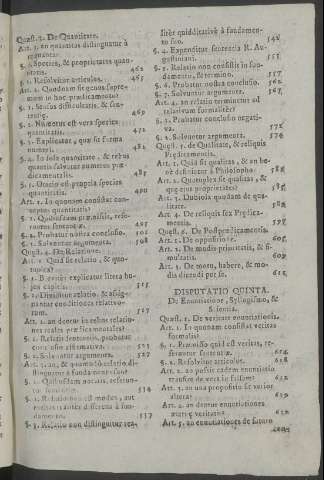 Quæst. 3. De Quantitate.
Art. 1. an quantitas distinguatur à
§. 2. Species, & proprietates quan-
titatis. 462
§. 1. Resolvitur articulus. 465
Art. 2. Quodnam sit genus supre-
mum in hoc prædicamento
§. 1. Status difficultatis, & sen-
§. 2. Numerus est vera species
quantitatis. 472
§. 3. Explicatur, quæ sit forma
numeri. 481
§. 4. In sola quantitate, & rebus
quantis salvatur numerus præ-
dicamentalis. 485
§. 5. Oratio est propria species
quantitatis. 490
Art. 3. In quonam consistat con-
ceptus quantitatis?
§. 1. Quibusdam præmissis, refe-
runtur sententiæ. 495
§. 2. Probatur nostra conclusio. 502
§. 3. Solvuntur argumenta. 508
Quæst. 4. De Relatione.
Art. 1. Quid sit relatio, & quo-
tuplex?
§. 1. Breviter explicatur litera hu-
jus capitis. 515
§. 2. Dividitur relatio, & assig-
nantur conditiones relativo-
rum. 517
Art. 2. an dentur in rebus relatio-
nes reales prædicamentales?
§. 1. Relatio
§. 2. Solvuntur argumenta. 527
fundamento
§. 1. Quibusdam notatis, referun-
tur sententiæ. 534
§. 2. Relatio non est modus, aut
realiter differens à fun-
damento. 537
§. 3. Relatio non distinguitur rea-
liter quidditativè à fundamen-
to suo. 542
§. 4. Expenditur sententia R. Au-
gustiniani. 555
§. 5. Relatio non consistit in fun-
damento, & termino. 557
§. 6. Probatur nostra conclusio. 562
§. 7. Solvuntur argumenta. 567
Art. 4. an relatio terminetur ad
relativum formaliter?
§. 1. Probatur conclusio negati-
va. 572
§. 2. Solvuntur argumenta. 576
Quæst. 5. de Qualitate, & reliquis
Prædicamentis.
Art. 1. Quid sit qualitas, & an be-
nè definiatur à Philosopho
Art. 2. Quotuplex sit qualitas, &
quæ ejus proprietates?
Art. 3. Dubiola quædam de qua-
litate.
Art. 4. De reliquis sex Prædica-
mentis.
Quæst. 6. De Postprædicamentis.
Art. 1. De oppositione. 605
Art. 2. De modis prioritatis, & si-
multatis.
Art. 3. De motu, habere, & mo-
dis dicendi per se. 612
DISPUTATIO QUINTA.
De Enuntiatione, Syllogismo, &
Scientia.
Quæst. 1. De veritate enuntiationis.
Art. 1. In quonam consistat veritas
formalis
§. 1. Præmisso quid est veritas, re-
feruntur sententiæ. 614
§. 2. Resolvitur articulus. 618
Art. 2. an possit eadem enuntiatio
transire de vera in falsam?
Art. 3. an una propositio sit verior
altera?
Art. 4. an dentur enuntiationes
Art. 5. an enuntiationes de futuro